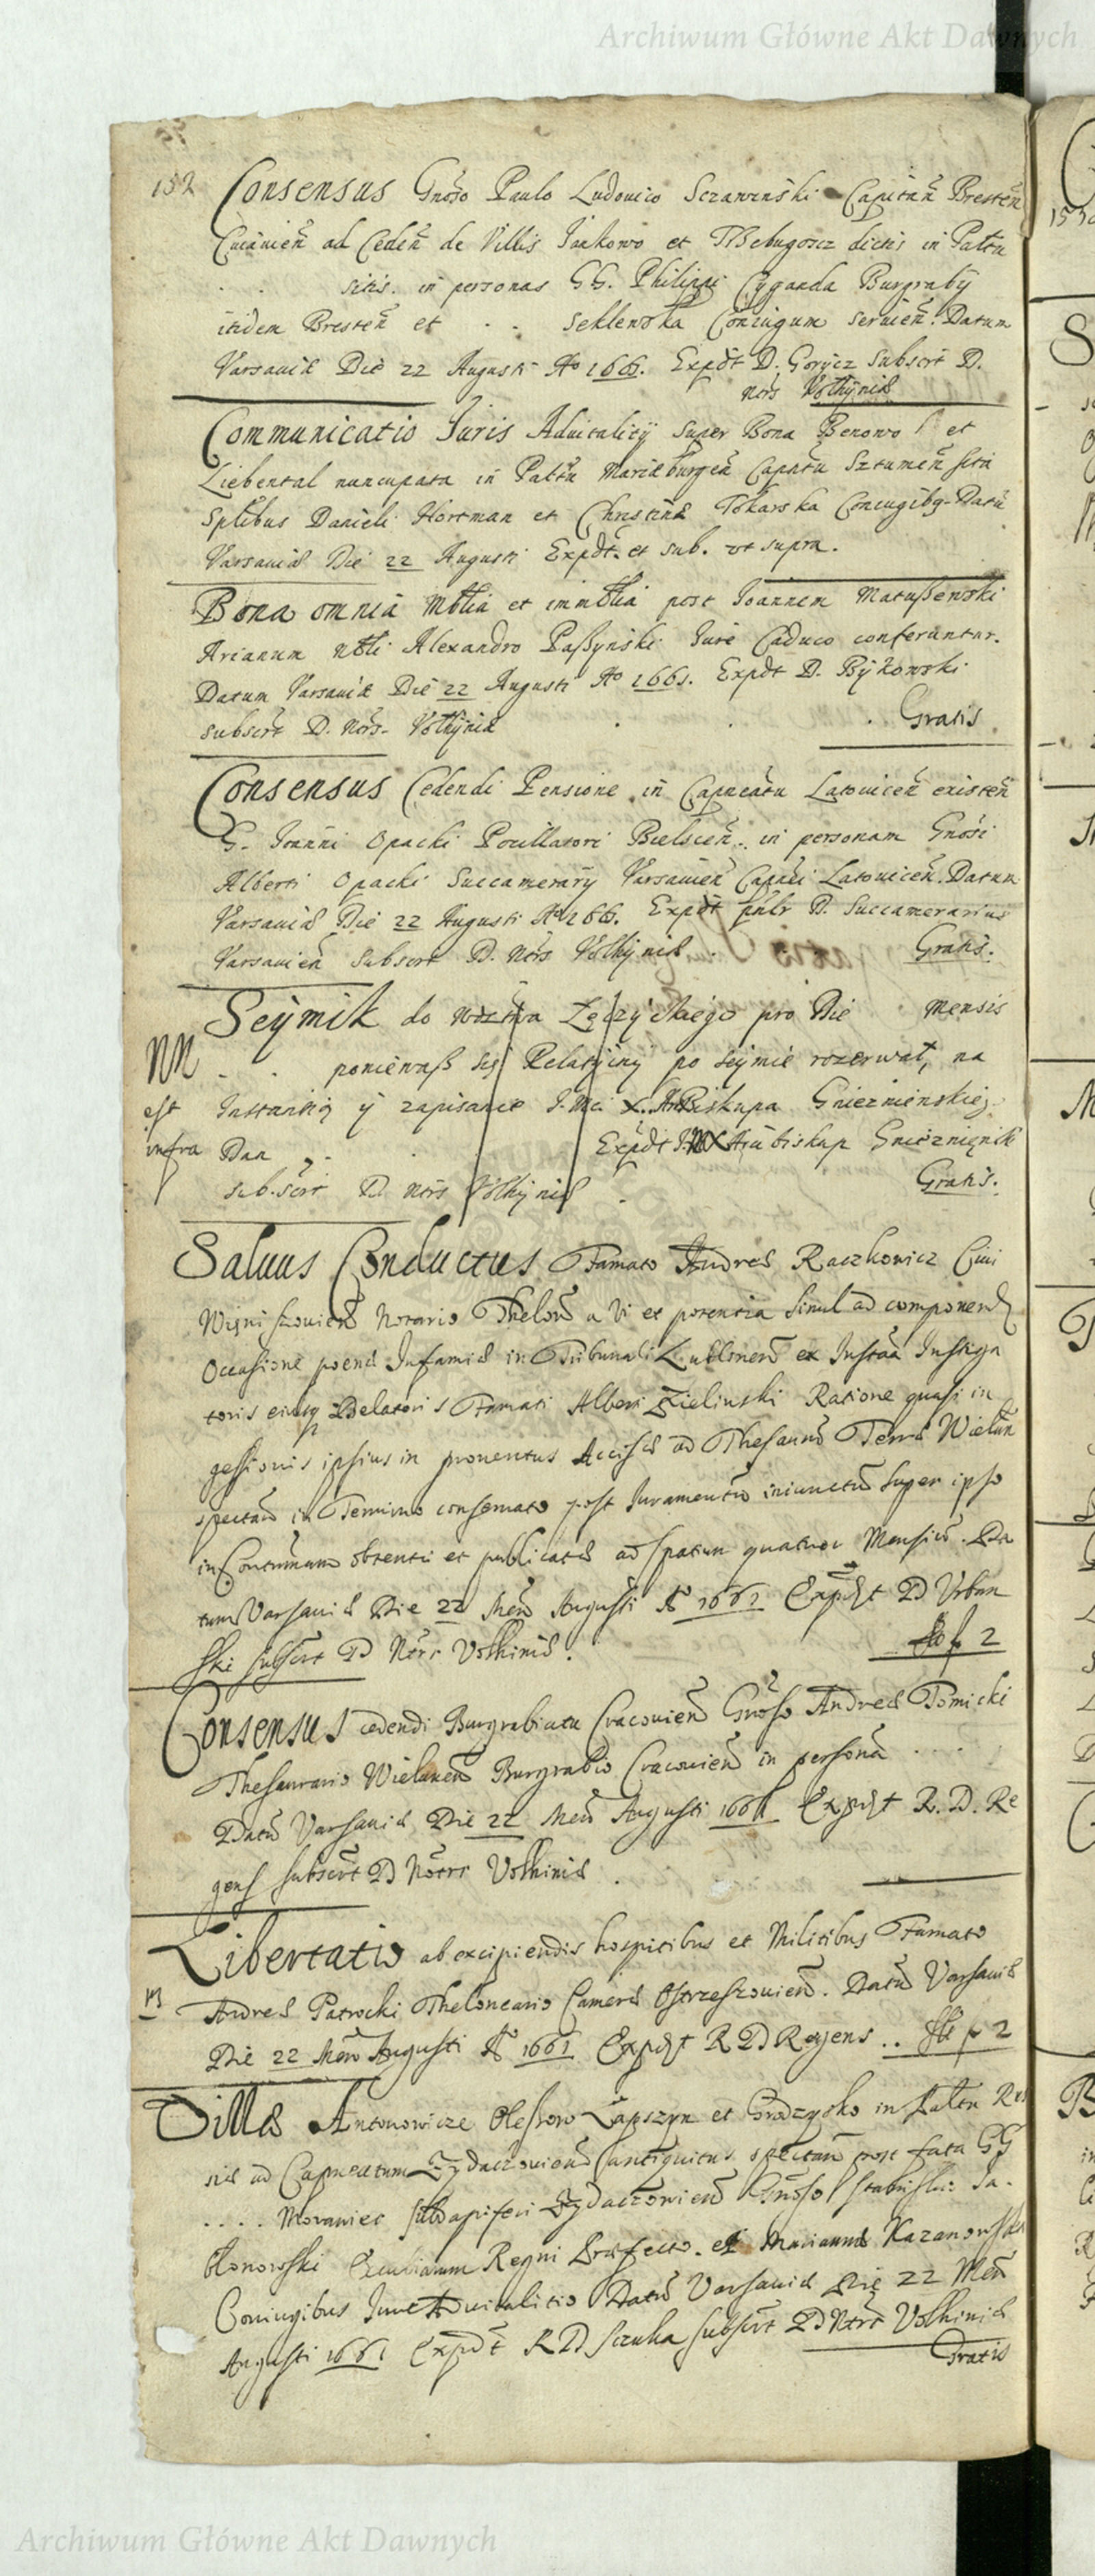 Archiwum Główne Akt Dawnych
152
Consensus Gnoso Paulo Ludovico Sczawinski Capitan Bresten
Cuiavien ad Ceden de Villis Jankowo et dictis in Pałtu
. . sitis. in personas GG. Philippi Cyganda Burgrabij
itidem Bresten et . . Seklenska Coniugum servien. Datum
Varsaviæ Die 22 Augusti Ao 1661. Expdt D. Gorycz Subscrt D.
Nors Volhyniæ
Communicatio Juris Advitalitij super Bona Benowo et
Liebental nuncupata in Paltu Marieburgen Capntu Sztumen sita
Sptibus Danieli Hortman et Christinæ Tokarska Coniugibg. Datu
Varsaviæ Die 22 Augusti Expdt. et sub. ut supra.
Bona omnia Mblia et immblia post Joannem Matußewski
Arianum Nbli Alexandro Paßynski Jure Caduco conferuntur.
Datum Varsaviæ Die 22 Augusti Ao 1661. Expdt D. Byżowski
subscrt D. Nors. Volhyniæ . . . Gratis
Consensus Cedendi Pensione in Capneatu Latovicen existen
G. Joanni Opacki Pocillatori Bielscen. in personam Gnosi
Alberti Opacki Succamerarij Varsavien Capnei Latovicen. Datum
Varsaviæ Die 22 Augusti Ao 1661. Expdt D. Succamerarius
Varsavien Subscrt D. Nors Volhyniæ . Gratis.
Seymik do Wdztwa Łęczyckiego pro Die mensis
NN . . poniewaß się Relatyiny po seymie rozerwał, na
est Instantią y zapisanie J. Mci X. ABiskupa Gnieznienskieg
infra Dan . . Expdt J.M.X Arcibiskup Gnieznienski
sub.scrt D. Nors Volhyniæ . Gratis.
Salvus Conductus Famato Andreæ Raczkowicz Civi
Notario Thelon a vi et potentia simul ad componend
Occasione poenæ Infamiæ in Tribunali Lublinen ex Instaa Instiga
toris eiusq Delatoris Famati Alberi Zielinski Ratione quasi in
gessionis ipsius in proventus Accisæ ad Thesauru Terræ Wielun
spectan in Termino conservato post Juramentu iniunctu super ipso
in Contumam obtentæ et publicatæ ad spatiu quatuor Mensiu. Da
tum Varsaviæ Die 22 Men Augusti Ao 1661 Expdt D Urban
ski subscrt D Nors Volhiniæ. 2
Consensus cedendi Burgrabiatu Cracovien Gnoso Andreæ Tomicki
Thesaurario Wielunen Burgrabio Cracovien in persona . . . .
Datu Varsaviæ Die 22 Men Augusti 1661 Expdt R. D. Re
gens subscrt D Notrs Volhiniæ .
Libertatio ab excipiendis hospitibus et Militibus Famato
Andreæ Patrocki Theloneario Cameræ Ostrzeszovien. Datu Varsaviæ
Die 22 Men Augusti Ao 1661 Expdt R D Regens .. 2
Villæ Antonowicze Olesrow Łapszyn et Grodzysko in Paltu Rus
siæ ad Capneatum Zydaczovien antiquitus spectan post fata GG
. . . . Morawiec Subdapiferi Zydaczowien Gnoso Stanislao Ja-
błonowski Excubiarum Regni Præfecto et Mariannæ Kazanowska
Coniugibus Jure Advitalitio Datu Varsaviæ Die 22 Men
Augusti 1661 Expdt R D Sczuka subscrt D Notrs Volhiniæ
Gratis
Archiwum Główne Akt Dawnych